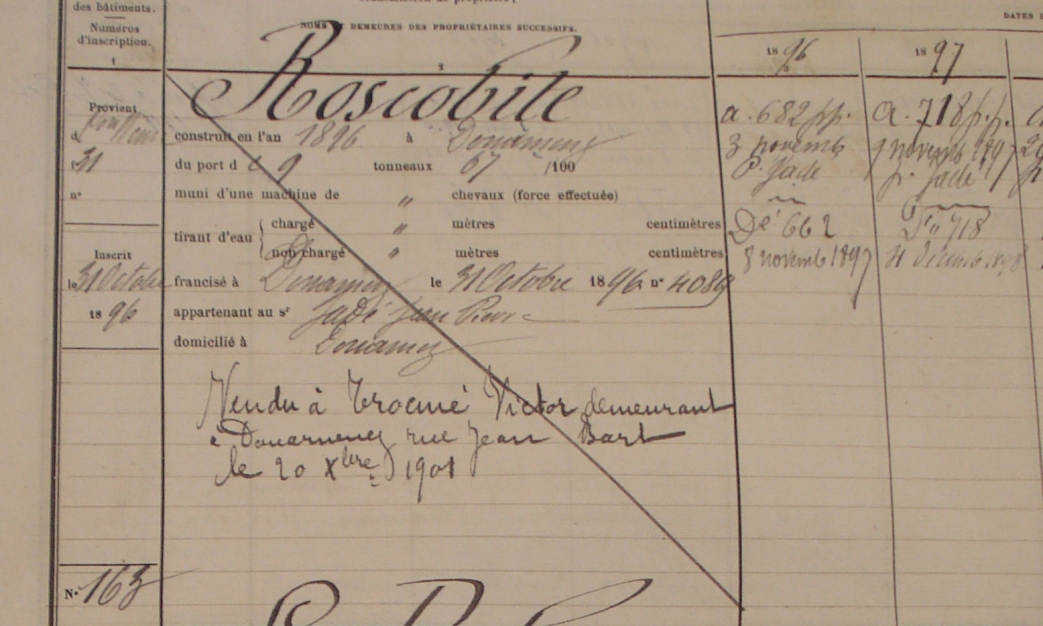 des bâtiments.
Numéros
d'inscription.
1
NOMS ET DEMEURES DES PROPRIÉTAIRES SUCCESSIFS.
2
DATES
1896
1897
Roscobite
Provient
d
f° 31
n°
Inscrit
le 31 Octobre
1896
construit en l'an 1896 à Douarnenez
du port de 9 tonneaux 67 /100
muni d'une machine de " chevaux (force effectuée)
tirant d'eau
chargé " mètres centimètres
non chargé " mètres centimètres
francisé à Douarnenez le 31 Octobre 1896 n° 4089
appartenant au sr Jadé Jean Pierre
domicilié à Douarnenez
Vendu à Trocmé Victor demeurant
à Douarnenez rue Jean Bart
le 20 Xbre 1901
a. 682 pp.
3 novemb
P. Jadé
Dé 662
8 novemb 1897
a. 718 pp.
9 novemb 1897
p. Jadé
Dé 718
31 Décemb 1898
N° 163